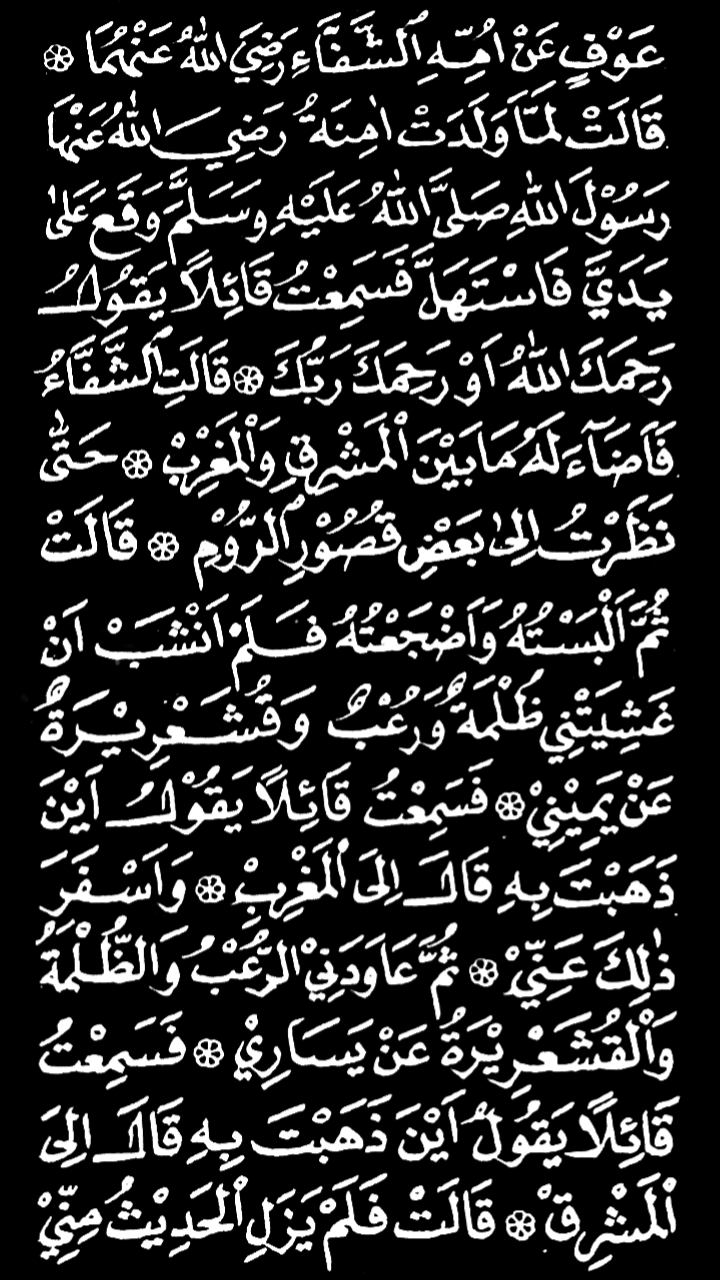 عَوْفٍ عَنْ اُمِّهِ الشَّفَّاءِ رَضِيَ اللهُ عَنْهُمَا ۞
قَالَتْ لَمَّا وَلَدَتْ اٰمِنَةُ رَضِيَ اللهُ عَنْهَا
رَسُوْلَ اللهِ صَلَّى اللهُ عَلَيْهِ وَسَلَّمَ وَقَعَ عَلٰى
يَدَيَّ فَاسْتَهَلَّ فَسَمِعْتُ قَائِلًا يَقُوْلُ
رَحِمَكَ اللهُ اَوْ رَحِمَكَ رَبُّكَ ۞ قَالَتِ الشَّفَّاءُ
فَاَضَآءَ لَهُ مَا بَيْنَ الْمَشْرِقِ وَالْمَغْرِبْ ۞ حَتّٰى
نَظَرْتُ اِلٰى بَعْضِ قُصُوْرِ الرُّوْمِ ۞ قَالَتْ
ثُمَّ اَلْبَسْتُهُ وَاَضْجَعْتُهُ فَلَمْ اَنْشَبْ اَنْ
غَشِيَتْنِيْ ظُلْمَةٌ وَرُعْبٌ وَقُشَعْرِيْرَةٌ
عَنْ يَمِيْنِيْ ۞ فَسَمِعْتُ قَائِلًا يَقُوْلُ اَيْنَ
ذَهَبْتَ بِهِ قَالَ اِلَى الْمَغْرِبْ ۞ وَاَسْفَرَ
ذٰلِكَ عَنِّيْ ۞ ثُمَّ عَاوَدَنِيْ الرُّعْبُ وَالظُّلْمَةُ
وَالْقُشَعْرِيْرَةُ عَنْ يَسَارِيْ ۞ فَسَمِعْتُ
قَائِلًا يَقُوْلُ اَيْنَ ذَهَبْتَ بِهِ قَالَ اِلَى
الْمَشْرِقْ ۞ قَالَتْ فَلَمْ يَزَلِ الْحَدِيْثُ مِنِّيْ